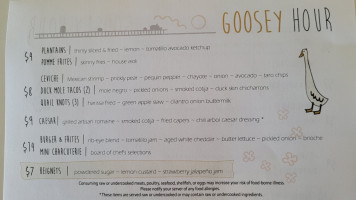 GOOSEY HOUR
$4 PLANTAINS | thinly sliced & fried ~ lemon ~ tomatillo avocado ketchup
POMME FRITES | skinny fries ~ house aioli
CEVICHE | Mexican shrimp ~ prickly pear ~ pequin pepper ~ chayote ~ onion ~ avocado ~ taro chips
$8 DUCK MOLE TACOS (2) | mole negro ~ pickled onions ~ smoked cotija ~ duck skin chicharrons
QUAIL KNOTS (3) | harissa fried ~ green apple slaw ~ cilantro onion buttermilk
$9 CAESAR | romaine ~ smoked cotija ~ fried capers ~ chili arbol caesar dressing *
BURGER & FRITES | rib-eye blend ~ tomatillo jam ~ aged white cheddar ~ butter lettuce ~ pickled onion ~ brioche
$14 MINI CHARCUTERIE | board of chef's selections
$7 BEIGNETS | powdered sugar ~ lemon custard ~ strawberry jalapeño jam
Consuming raw or undercooked meats, poultry, seafood, shellfish, or eggs may increase your risk of food-borne illness.
Please notify your server of any food allergies.
*These items are served raw or undercooked, or may contain raw or undercooked ingredients.